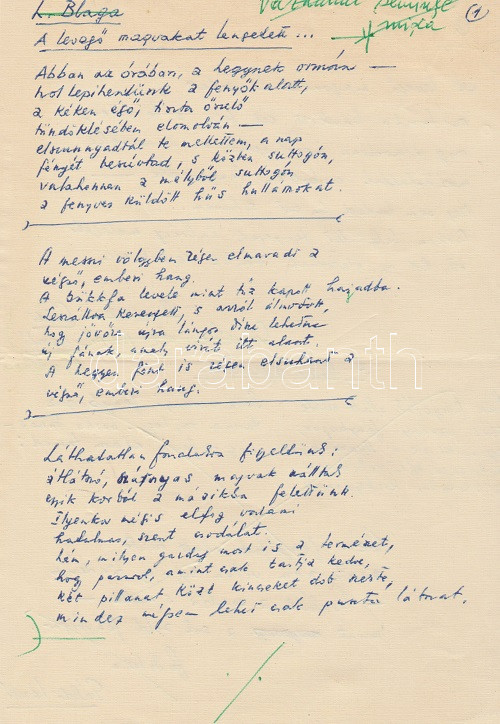 L. Blaga
①
A levegő magvakat lengetett...
Abban az órában, a hegynek ormán —
hol lepihentünk a fenyők alatt,
a kéken égő, tiszta őszelő
tündöklésében elomolván —
elszunnyadtál te mellettem, a nap
fényét beszívtad, s közben suttogón,
valahonnan a mélyből suttogón
a fenyves küldött hűs hullámokat.
A messzi völgyben régen elmaradt a
végső, emberi hang.
A bükkfa levele mint tűz kapott hajadba.
Leszállva kerengett, s arról álmodott,
hogy jövőre újra lángos dísze lehetne
új fának, amely vírít itt alant.
A hegyen fönt is régen elsuhant a
végső, emberi hang.
Láthatatlan fonálra figyeltünk:
átlátszó, szárnyas magvak szálltak
egyik korból a másikba felettünk.
Ilyenkor mégis elfog valami
hatalmas, szent csodálat.
Lám, milyen gazdag most is a természet,
hogy pazarol, amint csak tartja kedve,
két pillanat közt kincseket dob szerte,
mindez mégsem lehet csak puszta látszat.
darabanth